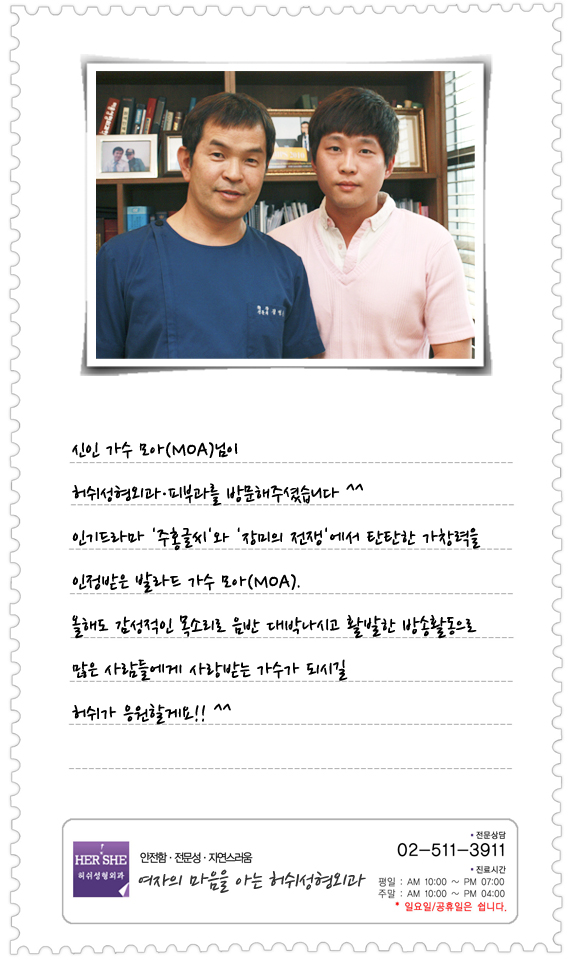 신인 가수 모아(MOA)님이
허쉬성형외과·피부과를 방문해주셨습니다 ^^
인기드라마 '주홍글씨'와 '장미의 전쟁'에서 탄탄한 가창력을
인정받은 발라드 가수 모아(MOA).
올해도 감성적인 목소리로 음반 대박나시고 활발한 방송활동으로
많은 사람들에게 사랑받는 가수가 되시길
허쉬가 응원할게요!! ^^
HER SHE
허쉬성형외과
안전함 · 전문성 · 자연스러움
여자의 마음을 아는 허쉬성형외과
▪ 전문상담
02-511-3911
▪ 진료시간
평일 : AM 10:00 ~ PM 07:00
주말 : AM 10:00 ~ PM 04:00
* 일요일/공휴일은 쉽니다.